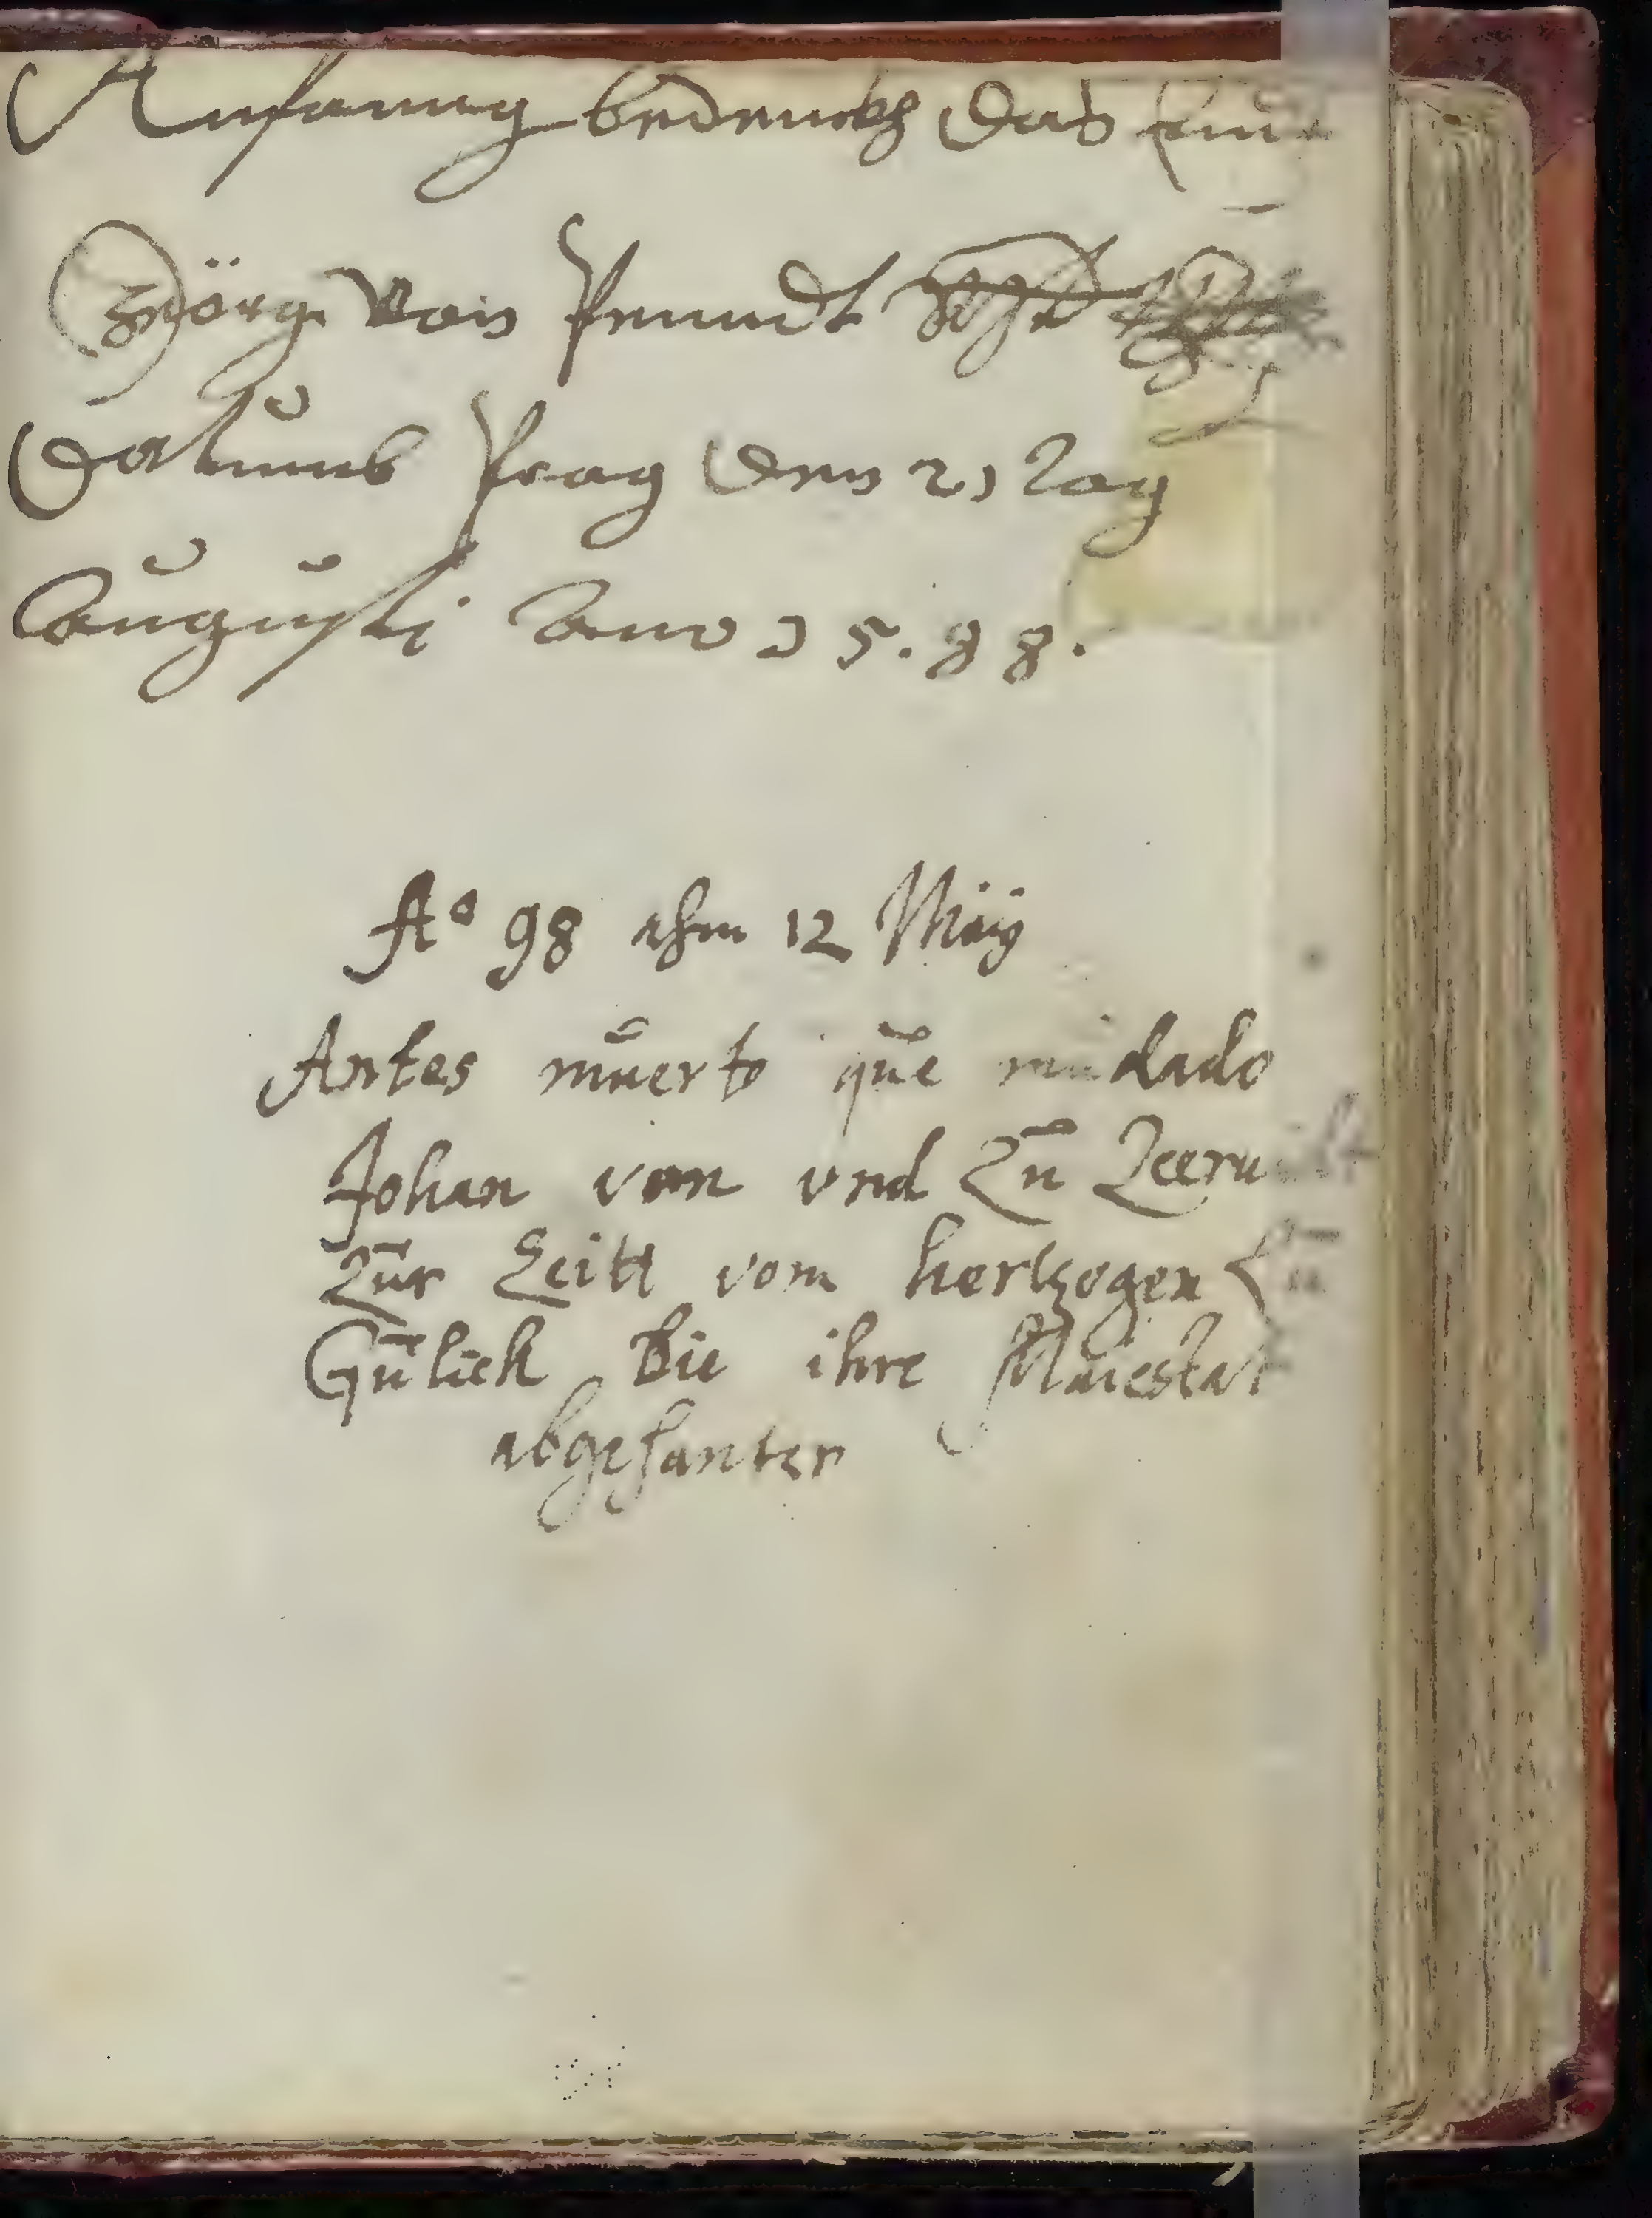 Anfanng bedenckh das Enndt
Geörg von
Datumb Prag den 21 Tag
Augusti Anno 1 5 . 9 8 .
Aº 98 ahm 12 Maÿ
Antes muerto que mudado
Johan von vnd Zu
Zur Zeitt vom hertzogen Zu
Gulich Bie ihre Maiestat
abgesanter